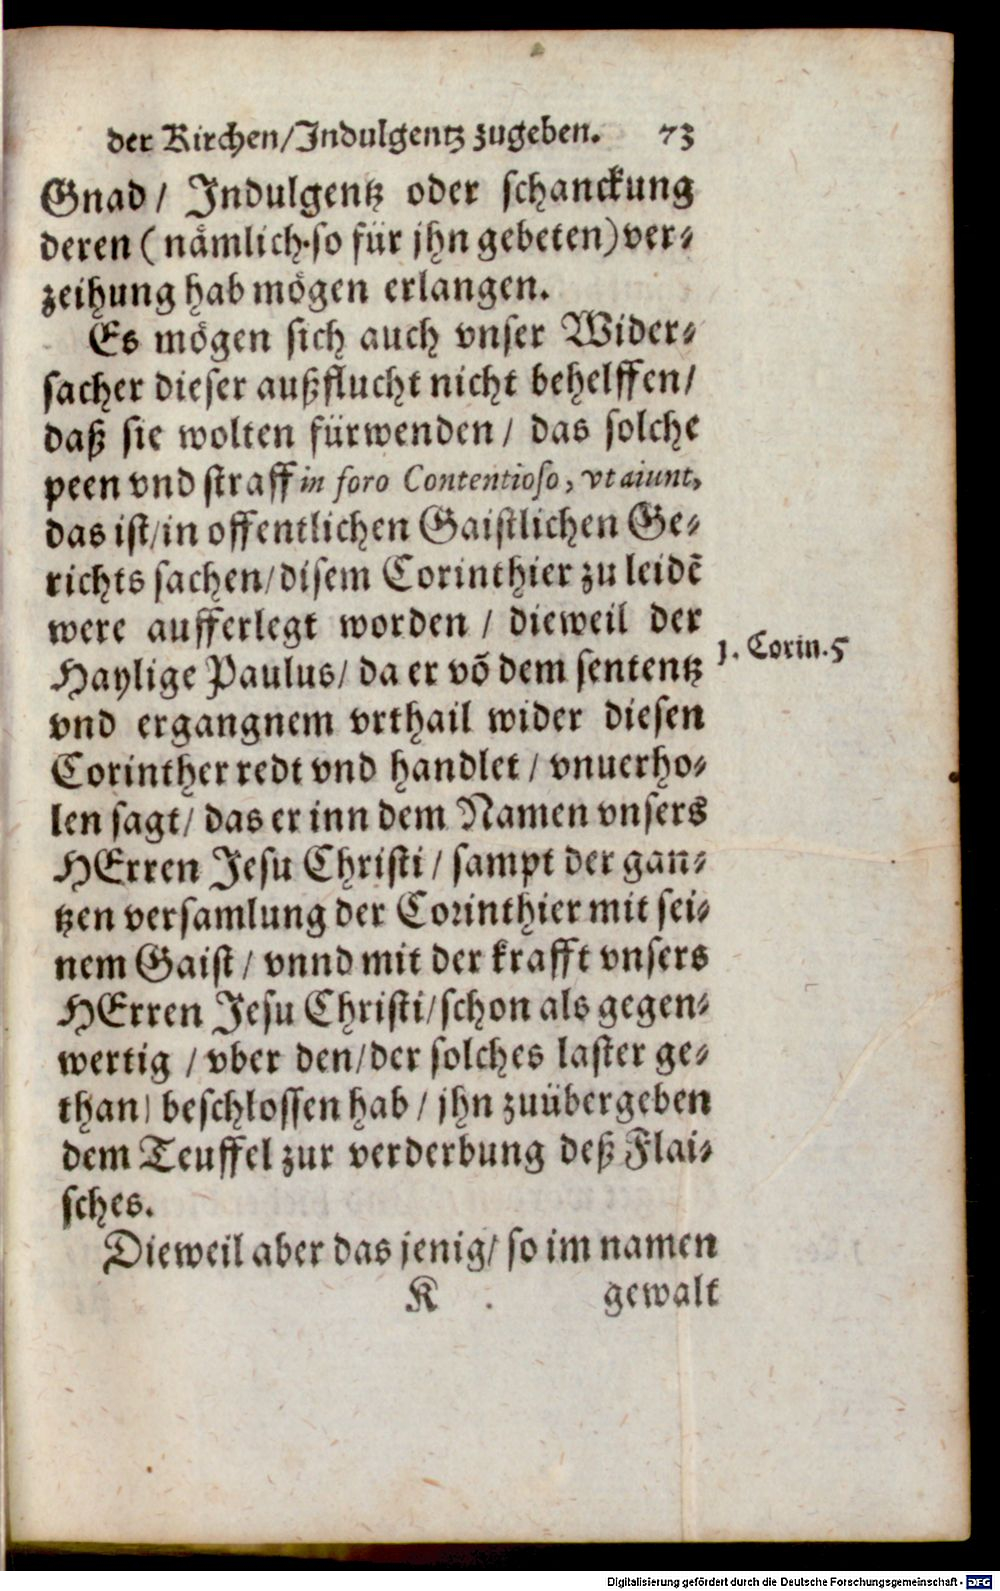 der Kirchen/Indulgentz zugeben. 73
Gnad/ Indulgentz oder schanckung
deren (nåmlich·so für jhn gebeten) ver⸗
zeihung hab mögen erlangen.
Es mögen sich auch vnser Wider⸗
sacher dieser außflucht nicht behelffen/
daß sie wolten fürwenden/ das solche
peen vnd straff in foro Contentioso, vt aiunt,
das ist/in offentlichen Gaistlichen Ge⸗
richts sachen/disem Corinthier zu leidẽ
were aufferlegt worden / dieweil der
Haylige Paulus/ da er võ dem sententz
1. Corin.5
vnd ergangnem vrthail wider diesen
Corinther redt vnd handlet / vnuerho⸗
len sagt/ das er inn dem Namen vnsers
HErren Jesu Christi / sampt der gan⸗
tzen versamlung der Corinthier mit sei⸗
nem Gaist / vnnd mit der krafft vnsers
HErren Jesu Christi/schon als gegen⸗
wertig / vber den/der solches laster ge⸗
than) beschlossen hab / jhn zuübergeben
dem Teuffel zur verderbung deß Flai⸗
sches.
Dieweil aber das jenig/ so im namen
K . gewalt
Digitalisierung gefördert durch die Deutsche Forschungsgemeinschaft - DFG